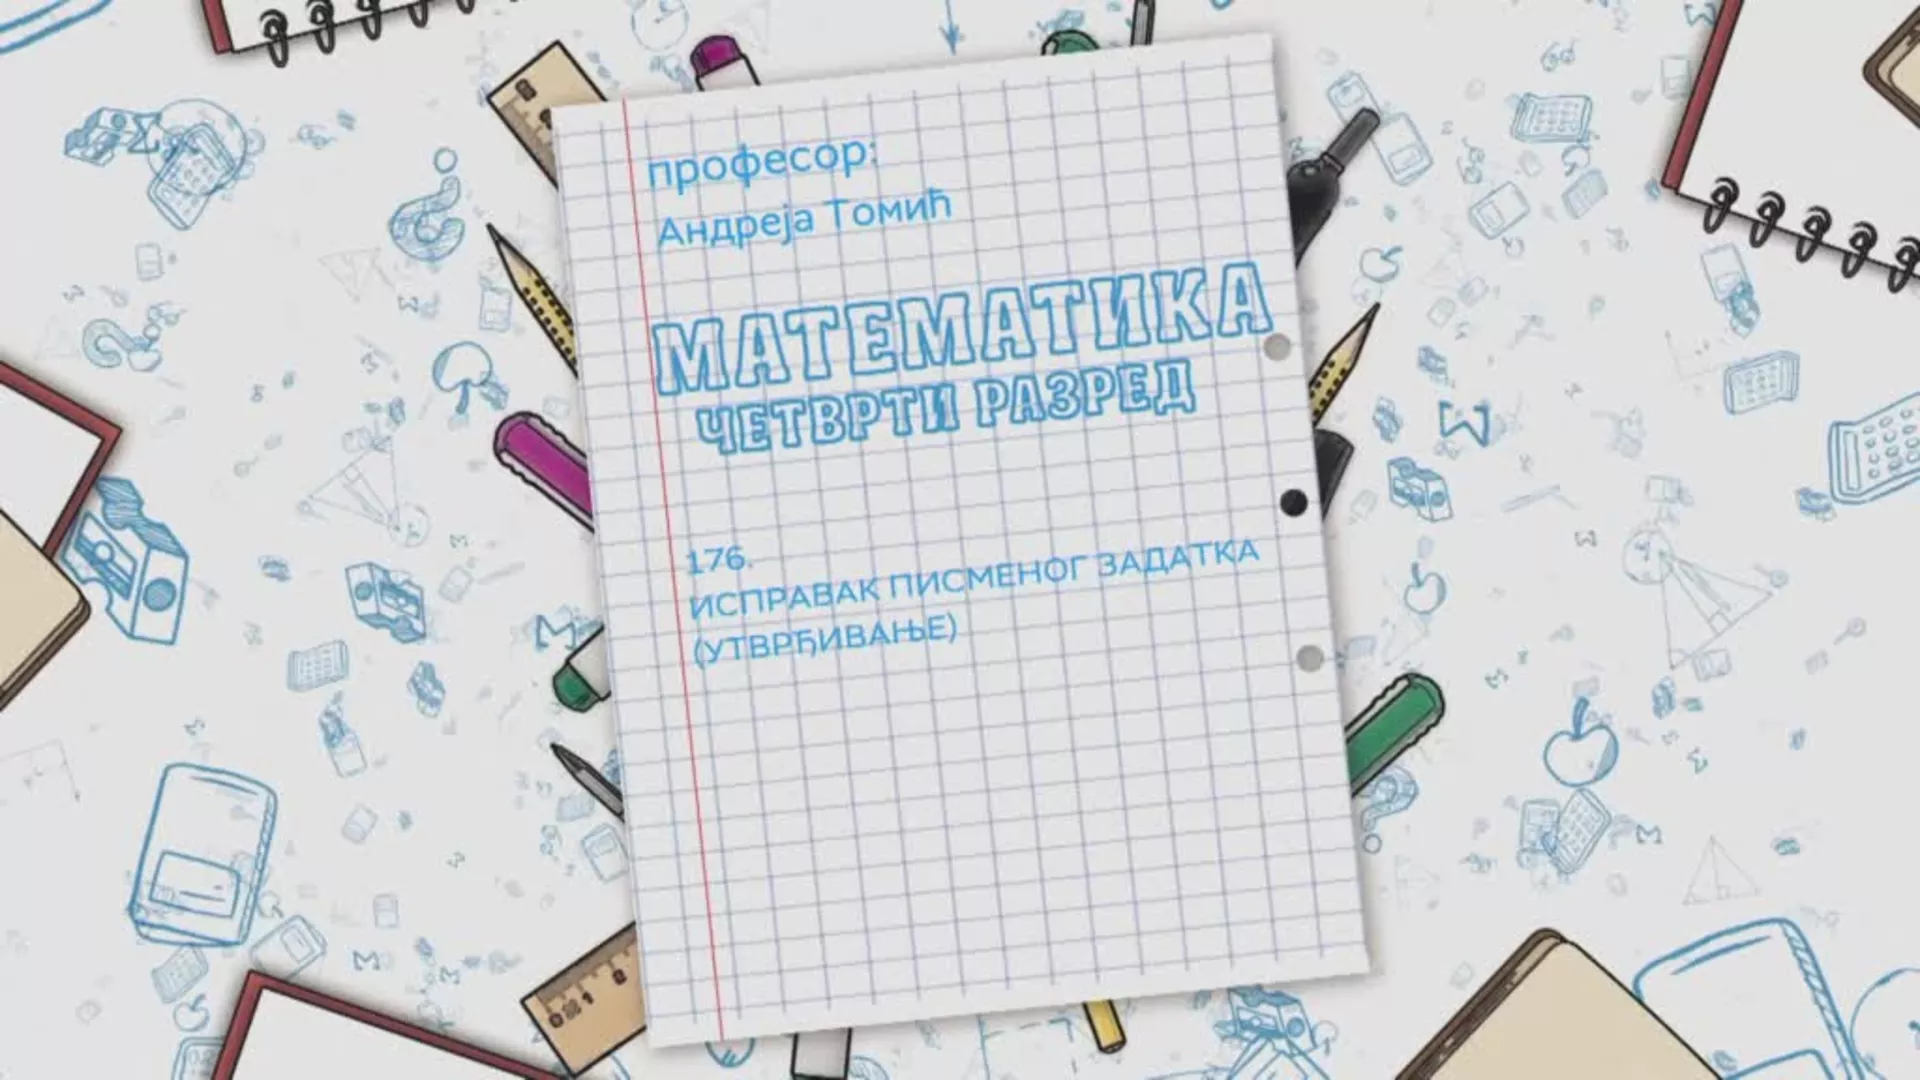 професор:
Андреја Томић
МАТЕМАТИКА
ЧЕТВРТИ РАЗРЕД
176.
ИСПРАВАК ПИСМЕНОГ ЗАДАТКА
(УТВРЂИВАЊЕ)